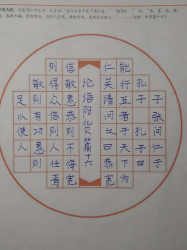 子张问仁于
孔子孔子曰
能行五者于天下为
仁矣请问之曰恭宽
论语阳货篇十六
信敏惠恭则不侮宽
则得众信则人任焉
敏则有功惠则
足以使人